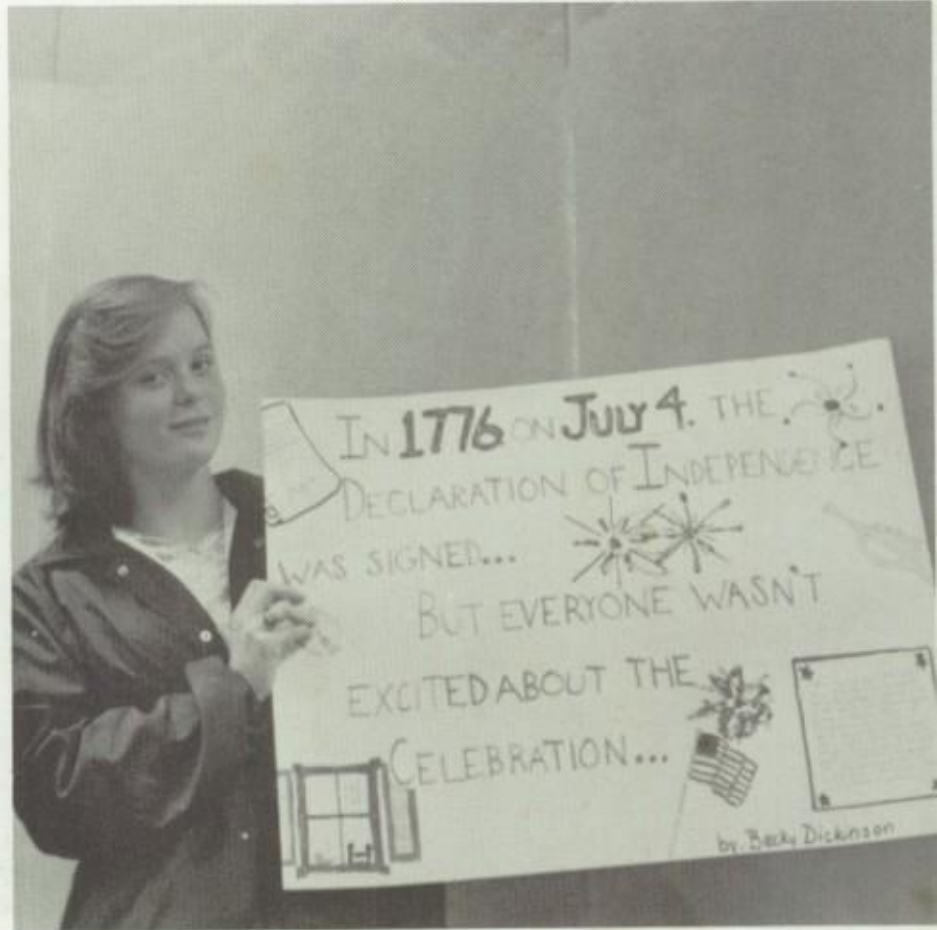 IN 1776 ON JULY 4. THE
DECLARATION OF INDEPENDENCE
WAS SIGNED...
BUT EVERYONE WASN'T
EXCITED ABOUT THE
CELEBRATION...
by: Becky Dickinson